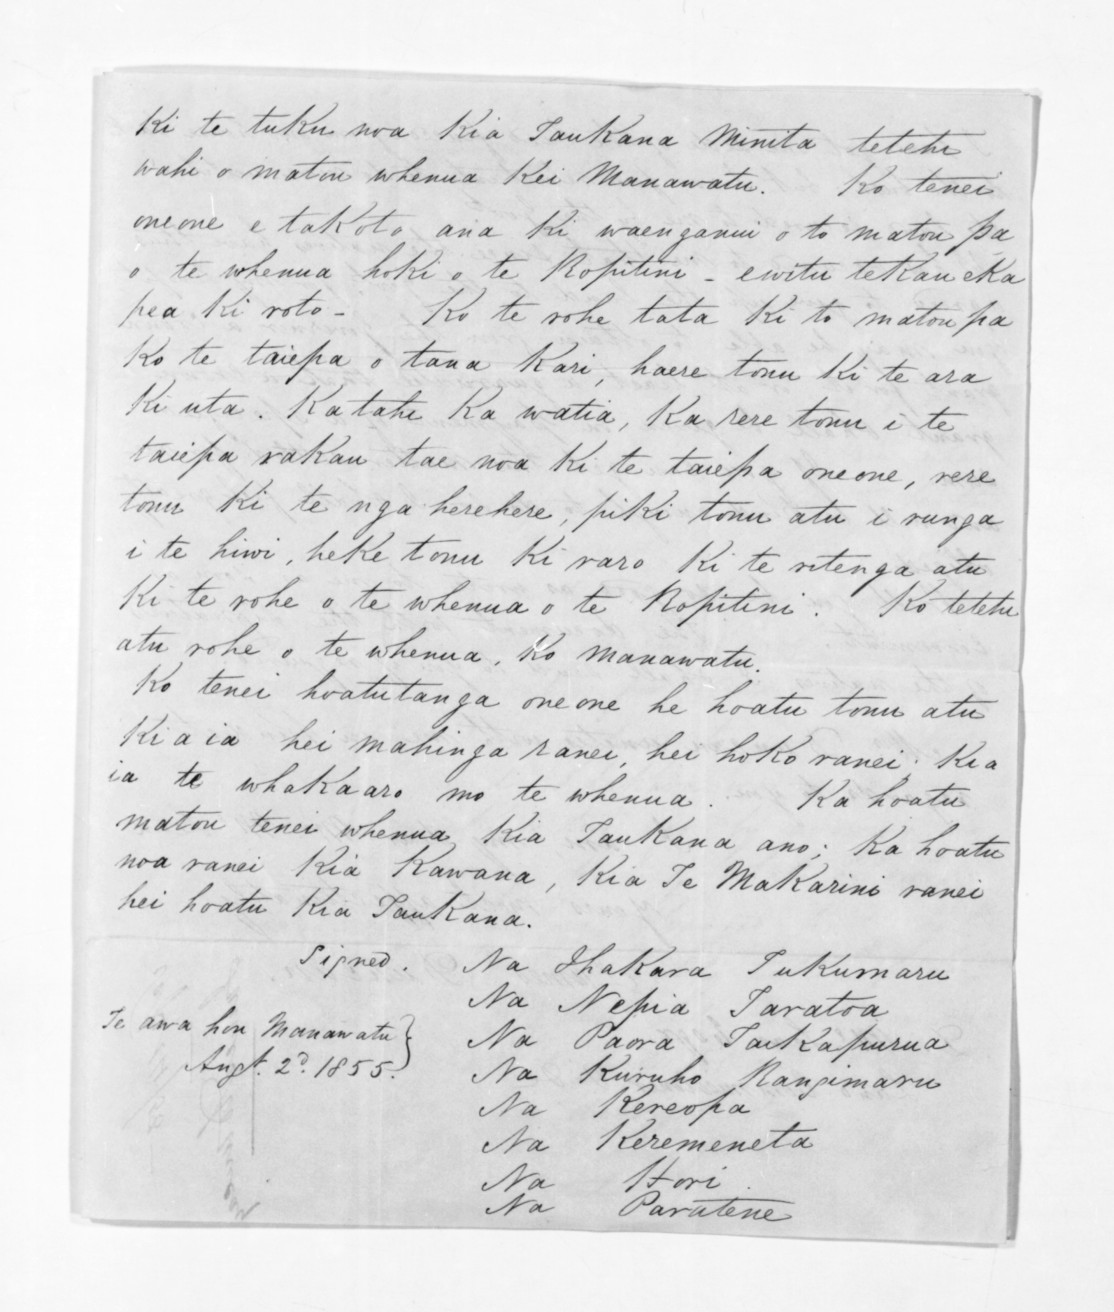 Ki te tuku noa Kia Taukana Minita tetehi
wahi o matou whenua Kei Manawatu. Ko tenei
oneone e takoto ana Ki waenganui o to matou pa
o te whenua hoki o te Ropitini - ewitu tekau eka
pea Ki roto - Ko te rohe tata Ki to matou pa
Ko te taiepa o tana Kari, haere tonu Ki te ara
Ki uta. Katahi Ka watia, Ka rere tonu i te
taiepa rakau tae noa Ki te taiepa oneone, rere
tonu Ki te nga herehere, piki tonu atu i runga
i te hiwi, heke tonu Ki raro Ki te ritenga atu
Ki te rohe o te whenua o te Ropitini. Ko tetehi
atu rohe o te whenua, Ko Manawatu.
Ko tenei hoatutanga oneone he hoatu tonu atu
Ki a ia hei mahinga ranei, hei hoko ranei. Kia
ia te whakaaro mo te whenua. Ka hoatu
matou tenei whenua Kia Taukana ano; Ka hoatu
noa ranei Kia Kawana, Kia Te Makarini ranei
hei hoatu Kia Taukana.
Signed. Na Ihakara Tukumaru
Na Nepia Taratoa
Te awa hou Manawatu Na Paora Taikapurua
Augt. 2d. 1855. Na Kuruho Rangimaru
Na Kereopa
Na Keremeneta
Na Hori
Na Paratene